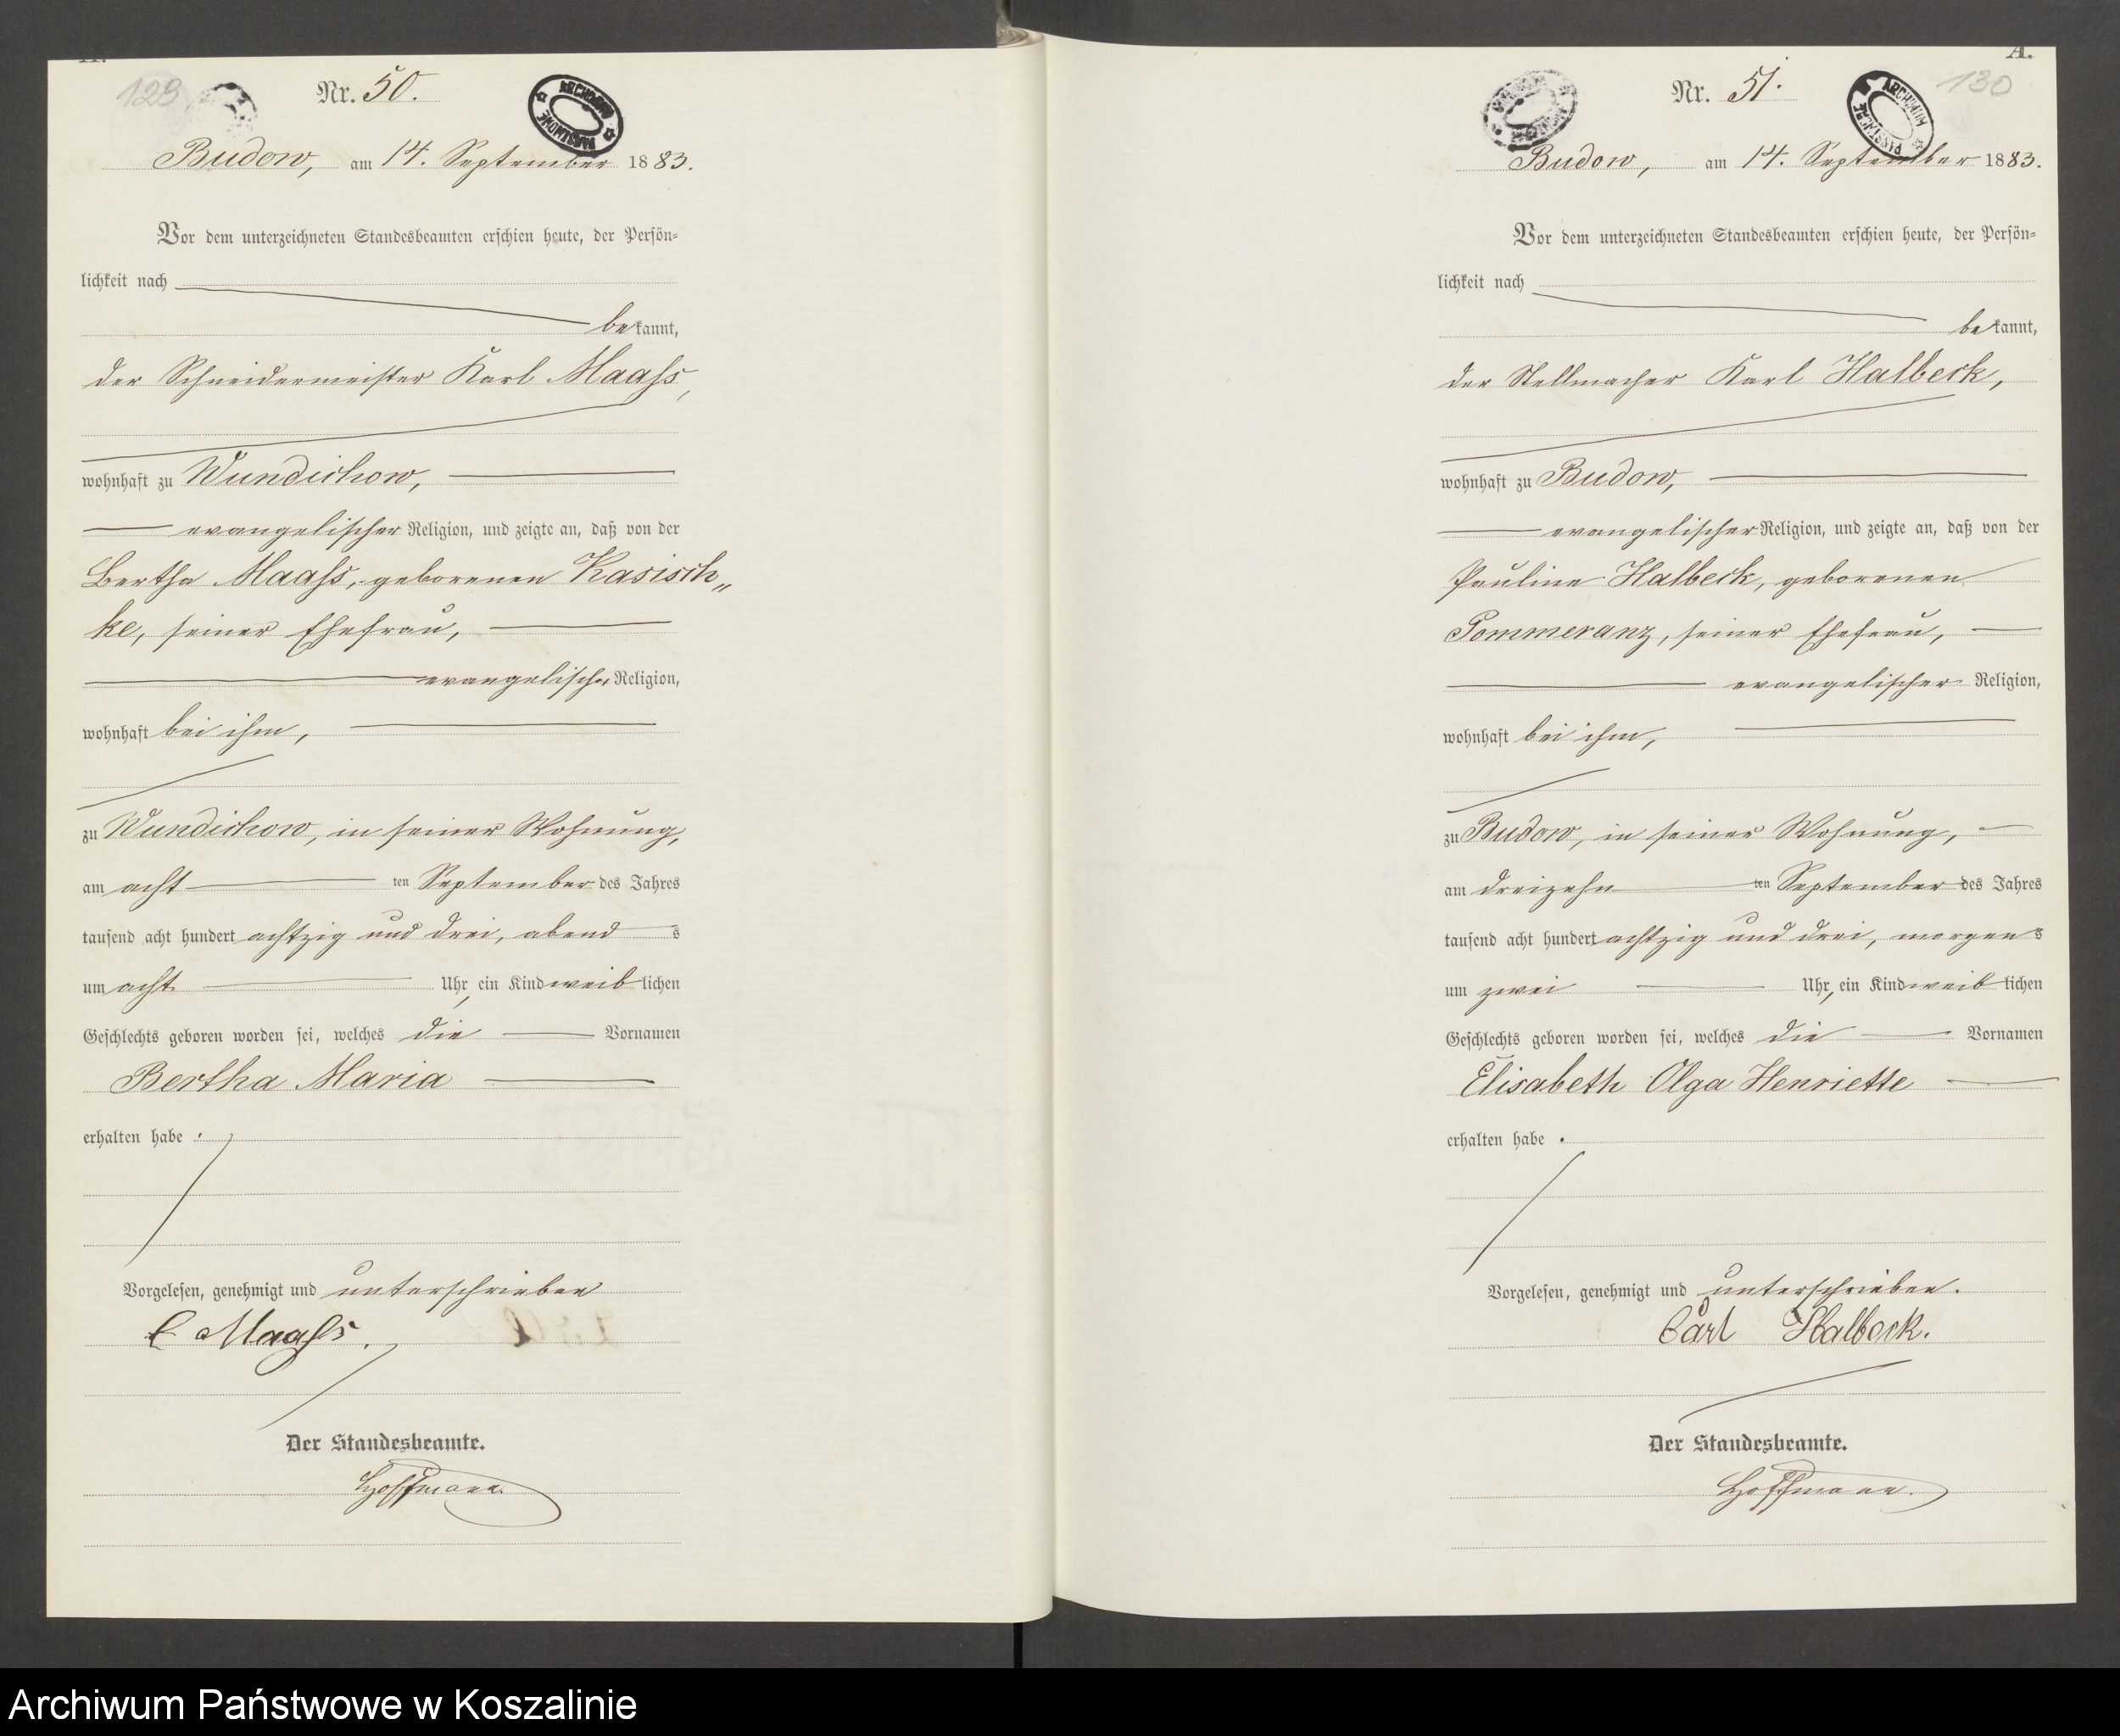 A.
129
Nr. 50.
ARCHIWUM PAŃSTWOWE
Budow, am 14. September 1883.
Vor dem unterzeichneten Standesbeamten erschien heute, der Persön-
lichkeit nach
bekannt,
der Schneidermeister Karl Maaß,
wohnhaft zu Wundichow,
evangelischer Religion, und zeigte an, daß von der
Bertha Maaß, geborenen Kasisch„
ke, seiner Ehefrau,
evangelischer Religion,
wohnhaft bei ihm,
zu Wundichow, in seiner Wohnung,
am acht ten September des Jahres
tausend acht hundert achtzig und drei, abend s
um acht Uhr, ein Kind weiblichen
Geschlechts geboren worden sei, welches die Vornamen
Bertha Maria
erhalten habe.
Vorgelesen, genehmigt und unterschrieben
C Maaß.
Der Standesbeamte.
Hoffmann.
A.
130
Nr. 51.
ARCHIWUM PAŃSTWOWE
Budow, am 14. September 1883.
Vor dem unterzeichneten Standesbeamten erschien heute, der Persön-
lichkeit nach
bekannt,
der Stellmacher Karl Halbeck,
wohnhaft zu Budow,
evangelischer Religion, und zeigte an, daß von der
Pauline Halbeck, geborenen
Pommeranz, seiner Ehefrau,
evangelischer Religion,
wohnhaft bei ihm,
zu Budow, in seiner Wohnung,
am dreizehn ten September des Jahres
tausend acht hundert achtzig und drei, morgens
um zwei Uhr, ein Kind weiblichen
Geschlechts geboren worden sei, welches die Vornamen
Elisabeth Olga Henriette
erhalten habe.
Vorgelesen, genehmigt und unterschrieben.
Carl Halbeck.
Der Standesbeamte.
Hoffmann.
Archiwum Państwowe w Koszalinie